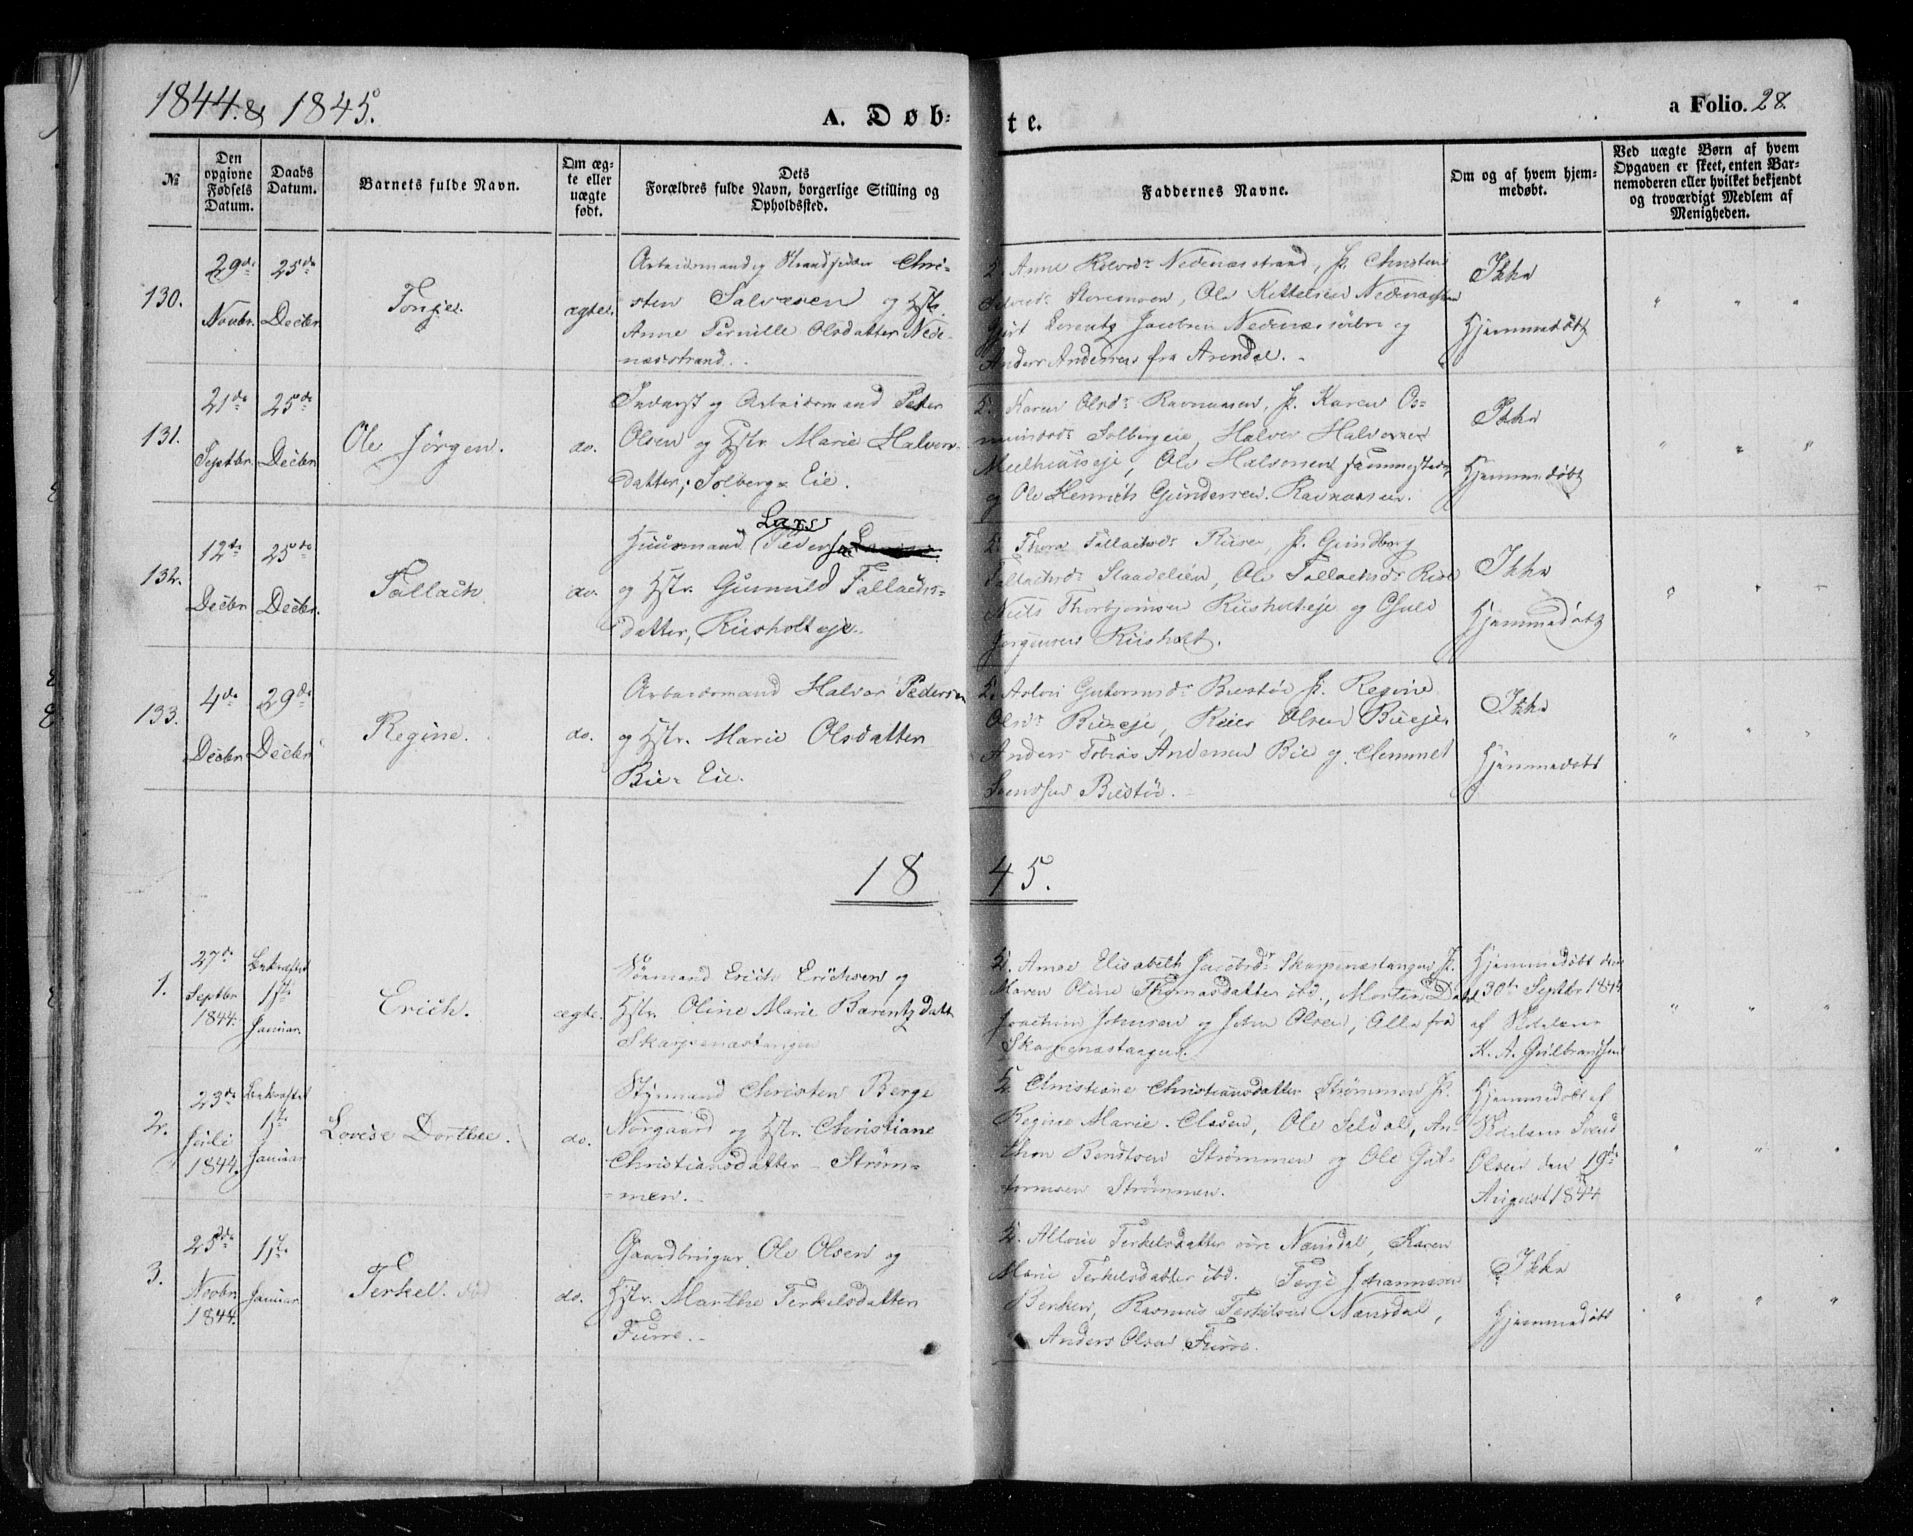 1844. & 1845.
A. Døbte.
a Folio. 28.
№
Den opgivne Fødsels Datum.
Daabs Datum.
Barnets fulde Navn.
Om ægte eller uægte født.
Dets Forældres fulde Navn, borgerlige Stilling og Opholdssted.
Faddernes Navne.
Om og af hvem hjemmedøbt.
Ved uægte Børn af hvem Opgaven er skeet, enten Barnemoderen eller hvilket bekjendt og troværdigt Medlem af Menigheden.
130.
29de Novbr.
25de Decbr.
Tonje.
ægte.
Arbeidsmand og Strandsidder Chri-
sten Salvesen og Hstr.
Anne Pernille Olsdatter Nede-
næsstrand.
Nedenæsstrand, p. Christen
Ole Kittelsen
Lorentz Jacobsen og
Anders Andersen fra Arendal.
Ikke
Hjemmedøbt
131.
21de Septbr.
25de Decbr.
Ole Jørgen.
do.
Inderst og Arbeidsmand Peter
Olsen og Hstr. Marie Halvors-
datter, Solberg Eie.
Karen Olsdr. Ravnaasen, p. Karen Os-
Solbergeie, Halvor Halvorsen
Ole Halvorsen sammesteds
og Ole Henrich Gundersen Ravnaasen.
Ikke
Hjemmedøbt
132.
12de Decbr.
25de Decbr.
Tallach
do.
Lars
Huusmand Pedersen
og Hstr. Gunnuld Tallachs-
datter, Riisholt eje.
Thora Tallachsdr.
Tallachsdr. Ole
Niels Thorbjørnsen Riisholteje og
Jørgensen Riisholt.
Ikke
Hjemmedøbt
133.
4de Decbr.
29de Decbr.
Regine.
do.
Arbeidsmand Halvor Pedersen
og Hstr. Marie Olsdatter
Bie Eie.
Biestøe p. Regine
Olsdr. Bieeje, Reier Olsen Bieeje,
Anders Tobias Andersen Bie og Clemmet
Svendsen Biestøe.
Ikke
Hjemmedøbt
1845.
1.
27de Septbr. 1844.
Bekræftet 1ste Januar
Erich.
ægte.
Sømand Erich Erichsen og
Hstr. Oline Marie Barentzdatt
Skarpenæstangen
Anne Elisabeth Jacobsdr. Skarpenæstangen p.
Maren Oline Thomasdatter ibd., Morten Dahl
Joachim Johnsen og John Olsen, Alle fra
Skarpenæstangen.
Hjemmedøbt den
30te Septbr 1844
af Skolelærer
K. A. Gulbrandsen
2.
23de Juli 1844.
Bekræftet 1ste Januar
Lovise Dorthee.
do.
Styrmand Christen Berge
Nørgaard og Hstr. Christiane
Christiansdatter - Strøm-
men.
Christiane Christiansdatter Strømmen p.
Regine Marie Clasen, Ole Seldal, An-
thon Bendtsen Strømmen og Ole Gut-
tormsen Strømmen.
Hjemmedøbt af
Skolelærer Svend
Olsen den 19de
August 1844
3.
25de Novbr. 1844.
1ste Januar
Terkel.
do.
Gaardbruger Ole Olsen og
Hstr. Marthe Terkelsdatter
Furre.
Terkelsdatter øvre Næsdal, Karen
Marie Terkelsdatter ibd. Terje Johannesen
Rasmus Terkelsen Næsdal,
Anders Olsen Furre.
Ikke
Hjemmedøbt